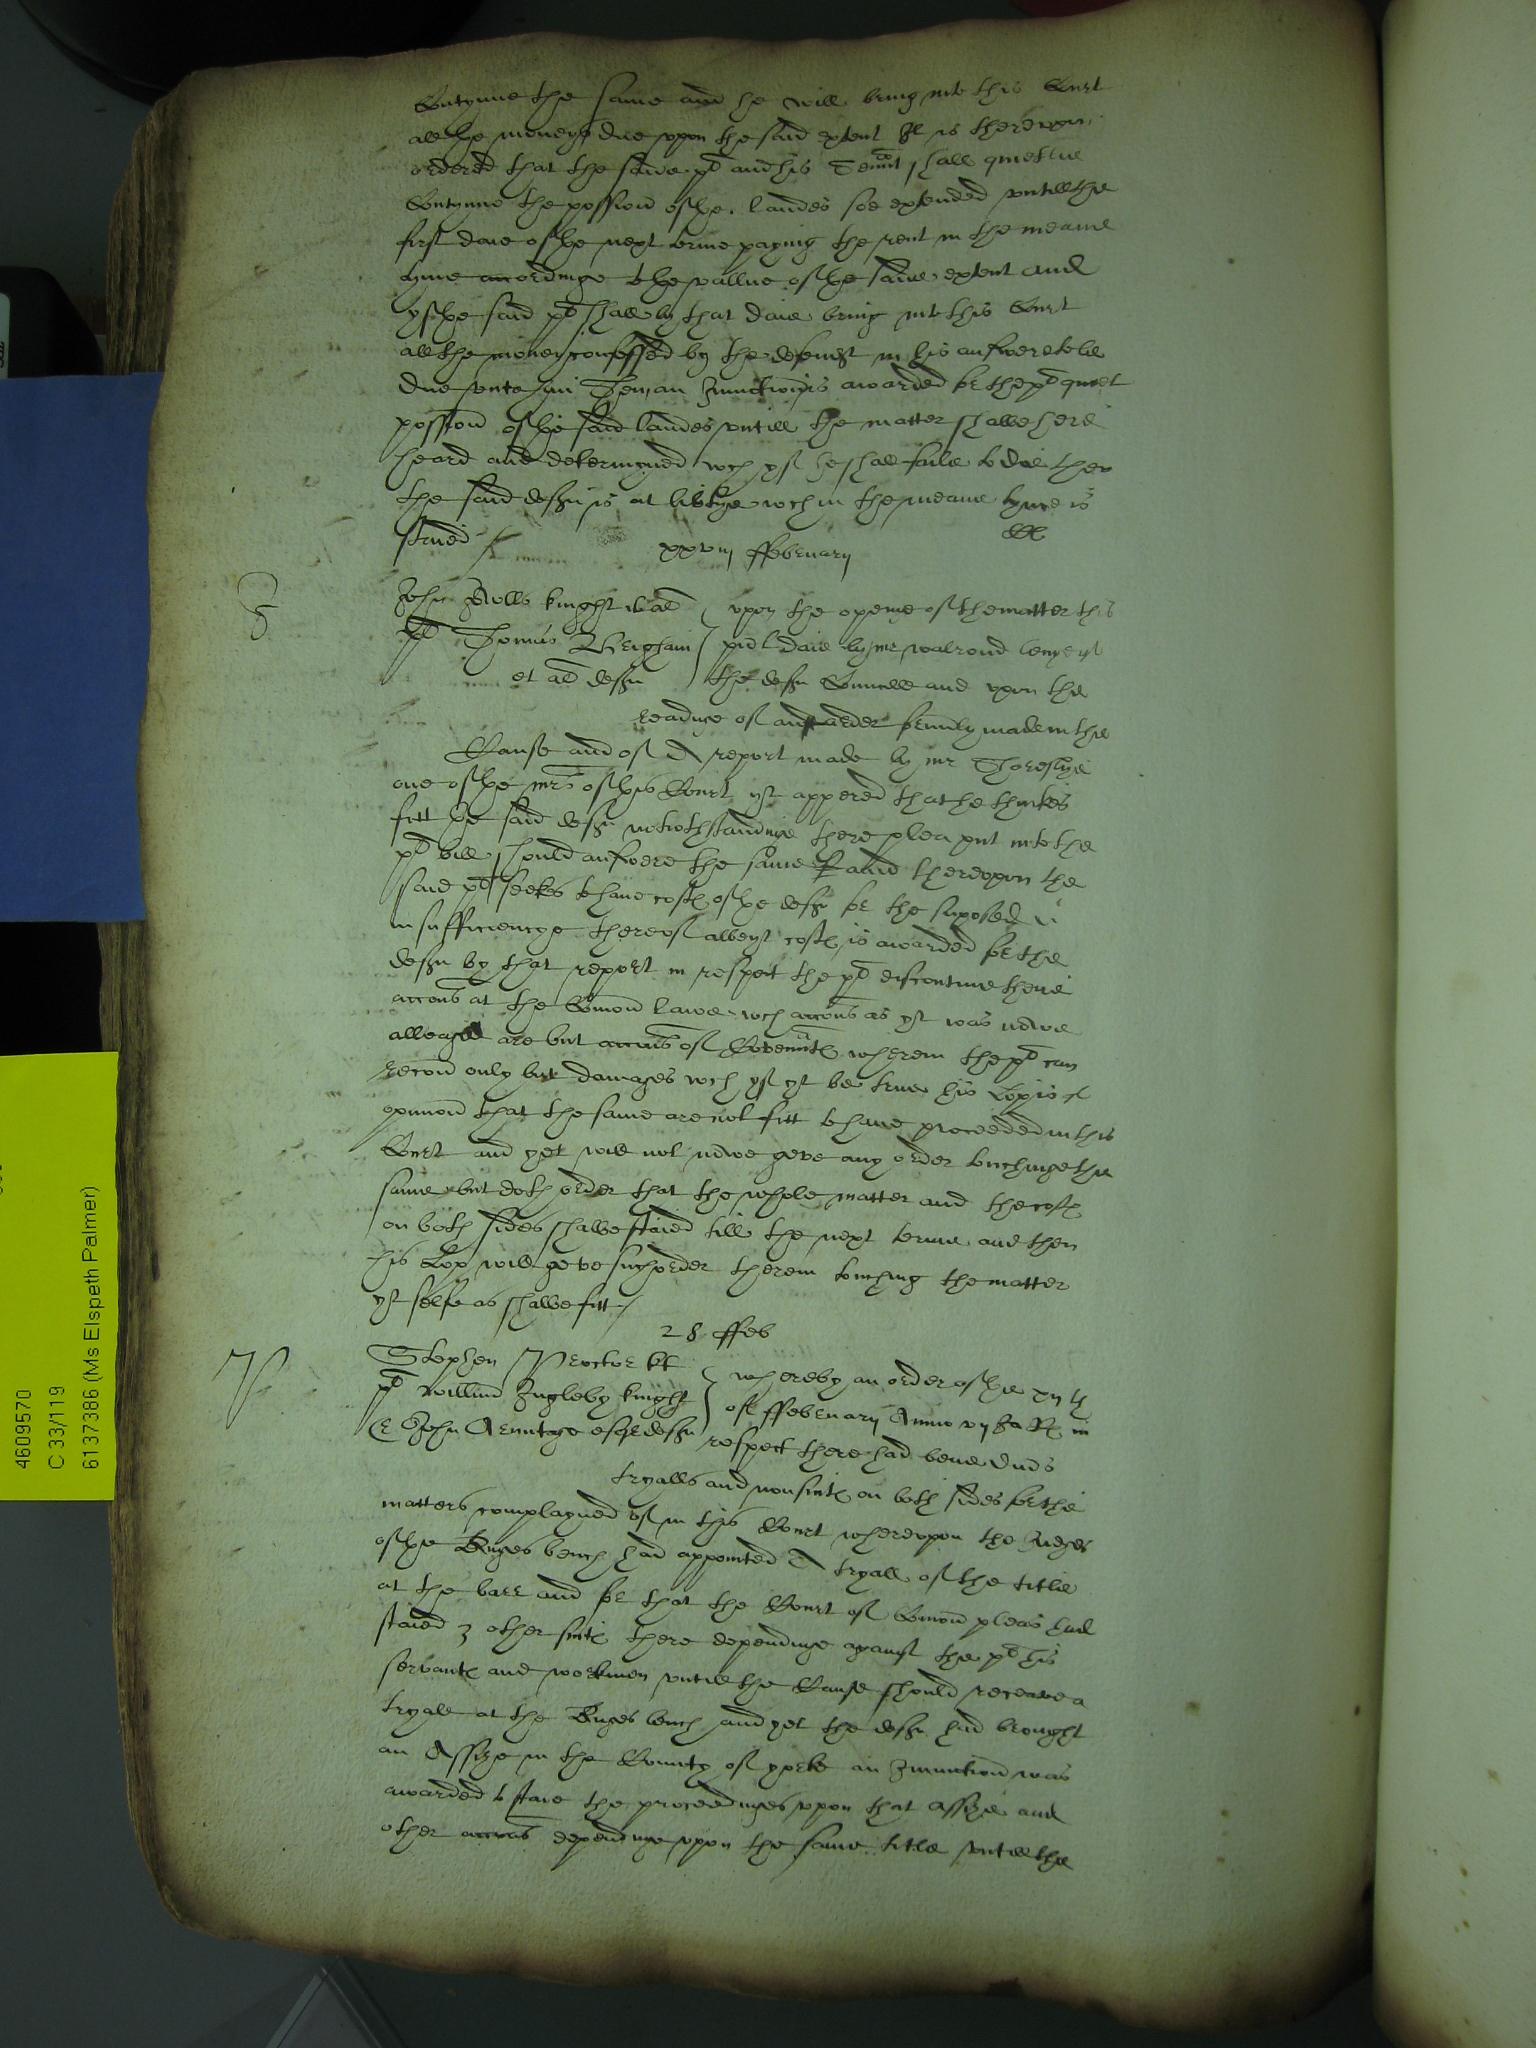 Contynue the same and he will bring into this Court
all the moneys due upon the said extent It is thereupon
ordered that the saide pl and his Tennt shall quietlie
Contynue the possion of the landes soe extended untill the
first daie of the next terme paying the rent in the meane
tyme accordinge to the vallue of the saide extent and
yf the said pl shall by that daie bring into this Court
all the money confessed by the defendt in his answere to be
due unto him Then an Iniunction is awarded for the pl quiet
possion of the said landes untill the matter shalbe here
heard and determyned wch yf he shall faile to doe then
the said deft is at libtye wch in the meane tyme is
staied
xxviij ffebruary
John knight et al
pl Thomas
et al defts
upon the openinge of the matter this
pnt daie by mr Walrond beinge of
the defts Councell and upon the
readinge of an order formly made in the
Cause and of A report made by mr Thoresbye
one of the mrs of this Court yt appered that he thinkes
fitt the said defts notwthstandinge there plea put into the
pl bill should answere the same and thereupon the
said pl seekes to have costs of the defts for the suposed
insufficiencye thereof albeyt costs is awarded for the
defts by that report in respect the pl discontinue theire
accons at the Comon lawe wch accons as yt was nowe
alleaged are but accons of Covennts wherein the pl can
recover only but damages wch yf yt be true his Lop is of
opinion that the same are not fitt to have proceeded in this
Court and yet will not nowe geve any order touchinge the
same but doth order that the whole matter and the costs
on both sides shalbe staied till the next terme and then
his Lop will geve such order therein touching the matter
yt selfe as shalbe fitt
28 ffeb
Stephen Proctor kt
pl William Ingleby knight
& John Armitage esqr defts
whereby an order of the xijth
of ffebruary Anno vij Ja R in
respect there had bene divs
tryalls and nonsuits on both sides for the
matters complayned of in this Court whereupon the Judges
of the Kinges bench had appointed A tryall of the title
at the barr and for that the Court of Comon pleas had
staied 3 other suits there dependinge against the pl his
servants and workmen untill the Cause should receave a
tryall at the Kinges bench and yet the defts had brought
an Assize in the County of yorke an Iniunction was
awarded to staie the proceedinges upon that assize and
other accons dependinge upon the same title untill the
4609570
C 33/119
6137386 (Ms Elspeth Palmer)